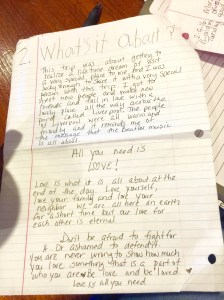 2. What's it About?
This trip was about getting to
realize a life time dream of visit
a very special place to me and I was
lucky enough to share it with a very special
person. With this trip I got to
meet new people and make new
friends and fall in love with a
lovely place all the way across the
pond called Liverpool. The people
I've gotten were all warm and
friendly and it reminded me of
the message that the Beatles music
is all about.
All you need is
LOVE!
Love is what it is all about at the
end of the day. Love yourself,
love your family and love your
neighbor we are all here on earth
for a short time but our love for
each other is eternal
Don't be afraid to fight for
& Or ashamed to defend it.
You are never wrong to show how much
you love something that is a part of
who you are be love and be loved.
Love is all you need